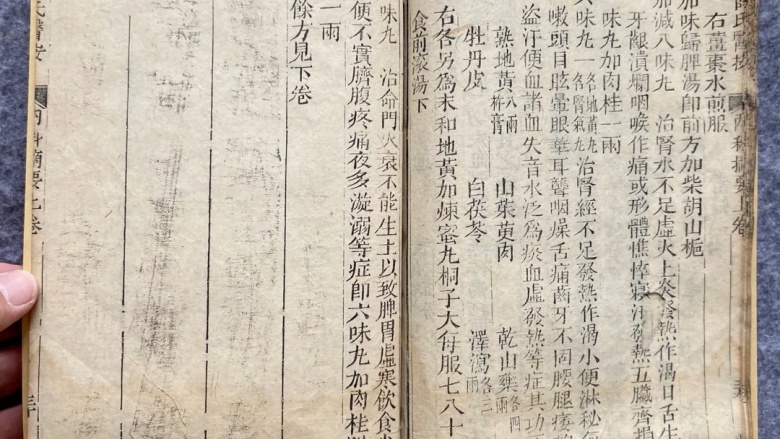 薛氏醫按
內科摘要上卷
右薑棗水煎服
加味歸脾湯即前方加柴胡山梔
加減八味丸 治腎水不足虛火上炎發熱作渴口舌生
牙齦潰爛咽喉作痛或形體憔悴寢汗發熱五臟齊損
味丸加肉桂一兩
六味丸 一名地黃丸 一名腎氣丸 治腎經不足發熱作渴小便淋秘
嗽頭目眩暈眼花耳聾咽燥舌痛齒牙不固腰腿痿
盜汗便血諸血失音水泛為痰血虛發熱等症其功
熟地黃八兩杵膏 山茱萸肉 乾山藥各四兩
牡丹皮 白茯苓 澤瀉各三兩
右各另為末和地黃加煉蜜丸桐子大每服七八十
食前滾湯下
味丸 治命門火衰不能生土以致脾胃虛寒飲食
便不實臍腹疼痛夜多漩溺等症即六味丸加肉桂
一兩
餘方見下卷
氏醫按
內科摘要上卷